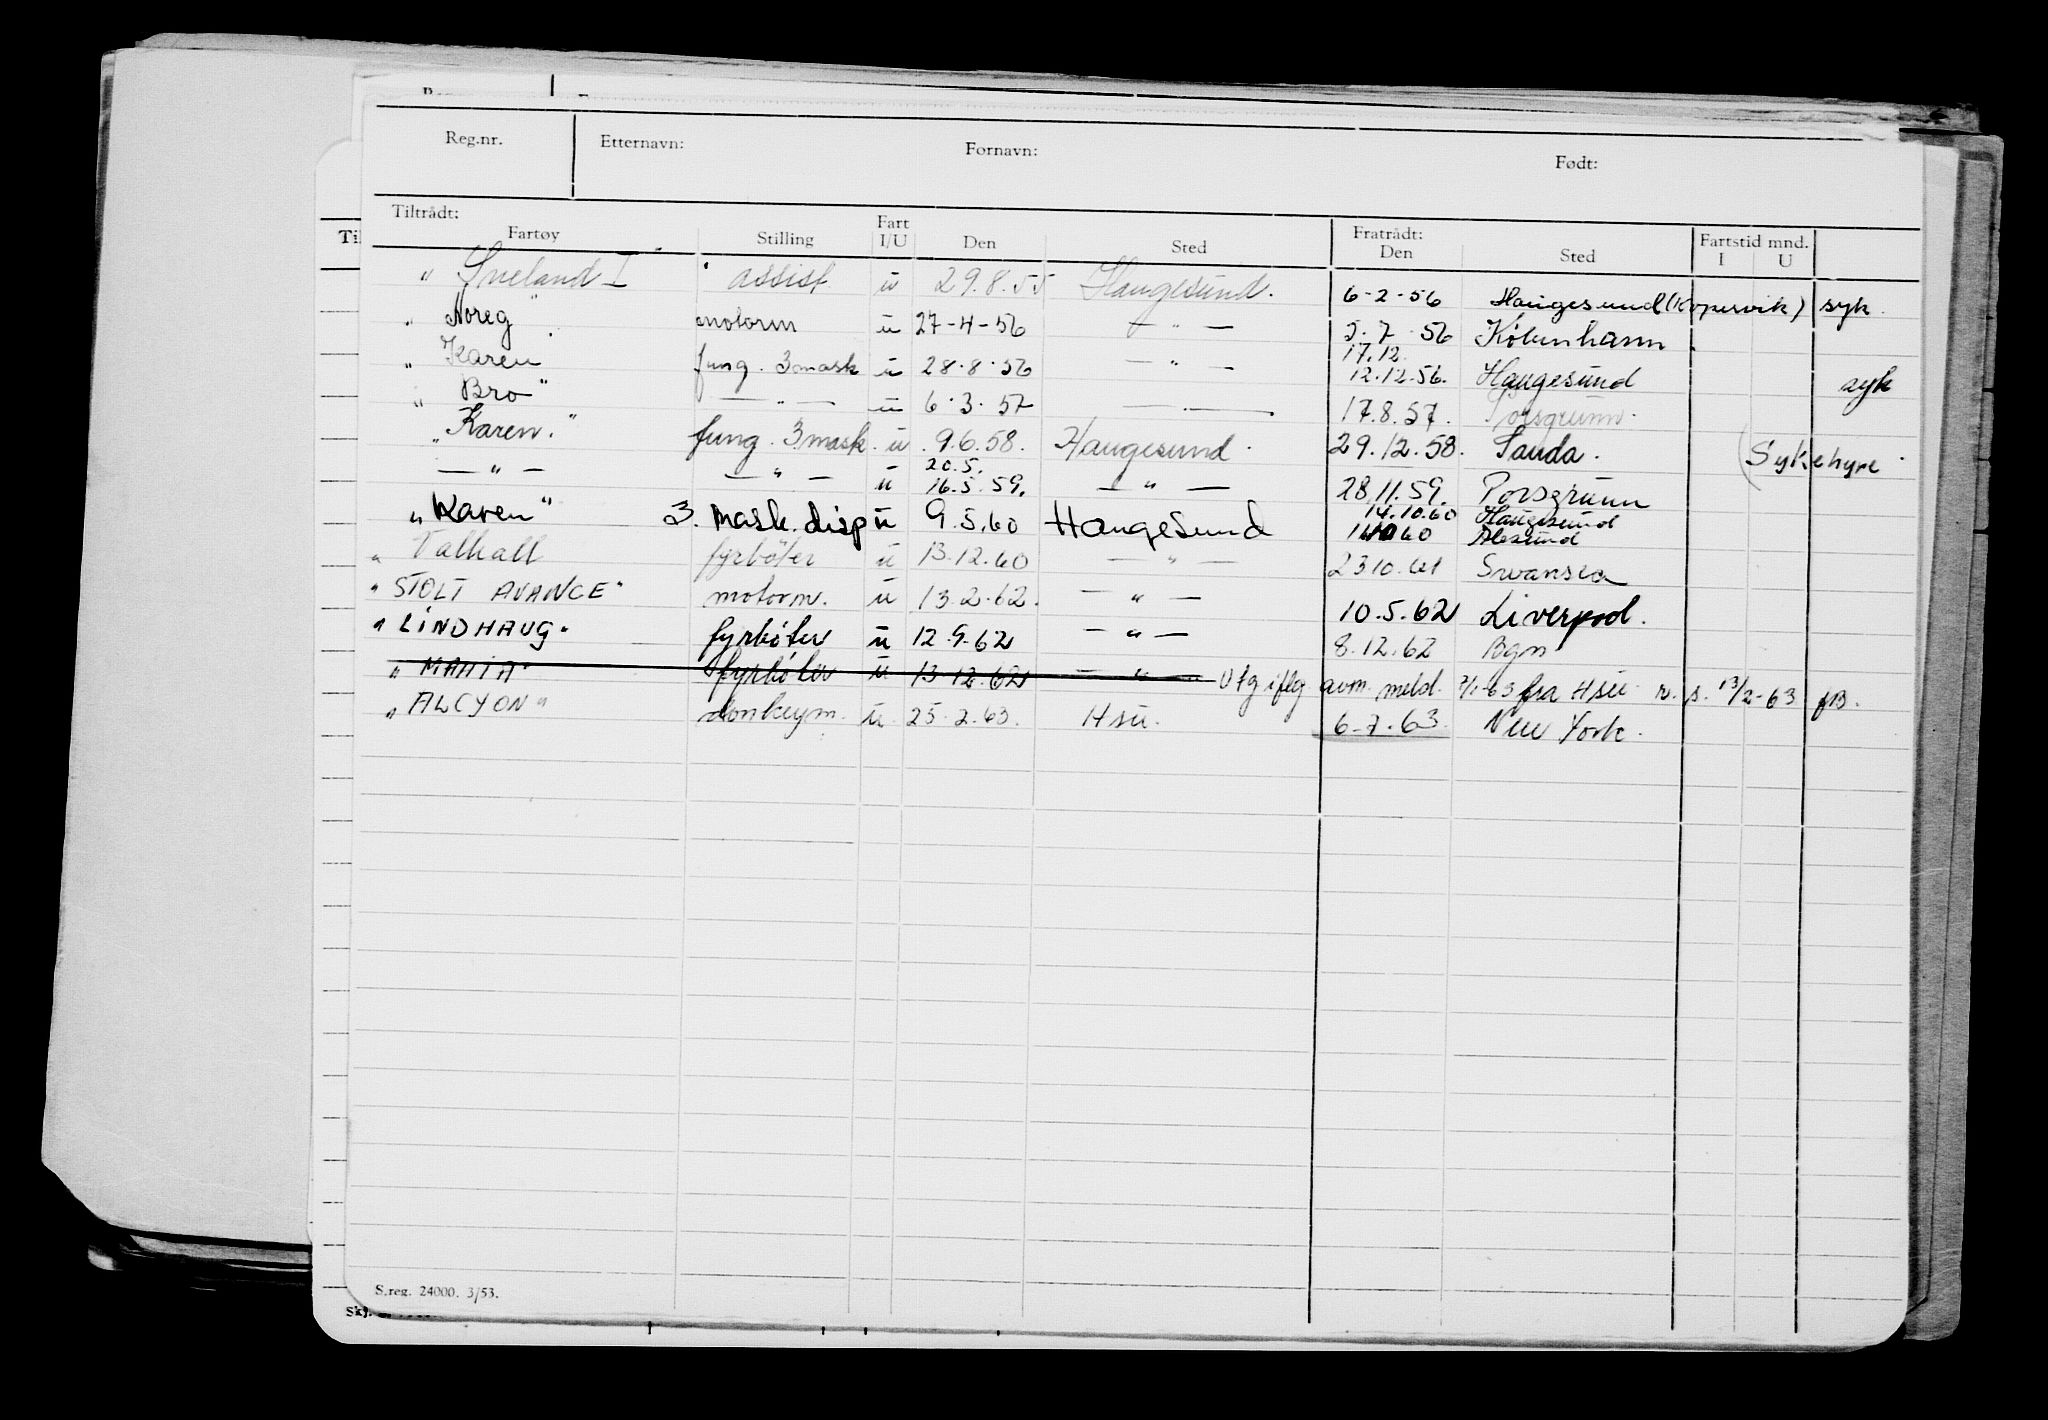 Reg.nr. Etternavn: Fornavn: Født:
Tiltrådt: Fartøy Stilling Fart I/U Den Sted Fratrådt: Den Sted Fartstid mnd. I U
" Sneland I " assist u 29.8.55 Haugesund. 6-2-56 Haugesund (Kopervik) syk.
" Noreg " motorm u 27-4-56 — " — 5.7.56 København.
17.12.
" Karen " fung. 3 mask u 28.8.56 — " — 12.12.56. Haugesund syk
" Bro " — " — u 6.3.57 — " — 17.8.57. Porsgrunn.
" Karen. " fung. 3 mask. u 9.6.58. Haugesund. 29.12.58. Sauda. (Sykehyre
20.5.
— " — — " — u 16.5.59. — " — 28.11.59. Porsgrunn
14.10.60 Haugesund
" Karen " 3. mask. disp u 9.5.60 Haugesund 60 Alesund
" Valhall fyrbøter u 13.12.60 — " — 23.10.61 Swansea
" STOLT AVANCE " motorm. u 13.2.62. — " — 10.5.62 Liverpool.
" LINDHAUG " fyrbøter u 12.9.62 — " — 8.12.62 Bgn
" MARIA " fyrbøter u 13.12.62 — " — Utg iflg avm. meld. 7/1-63 fra Hsu. r. s. 13/2-63 fB.
" ALCYON " donkeym. u 25.2.63. Hsu. 6-7.63. New York.
S.reg. 24000. 3/53.